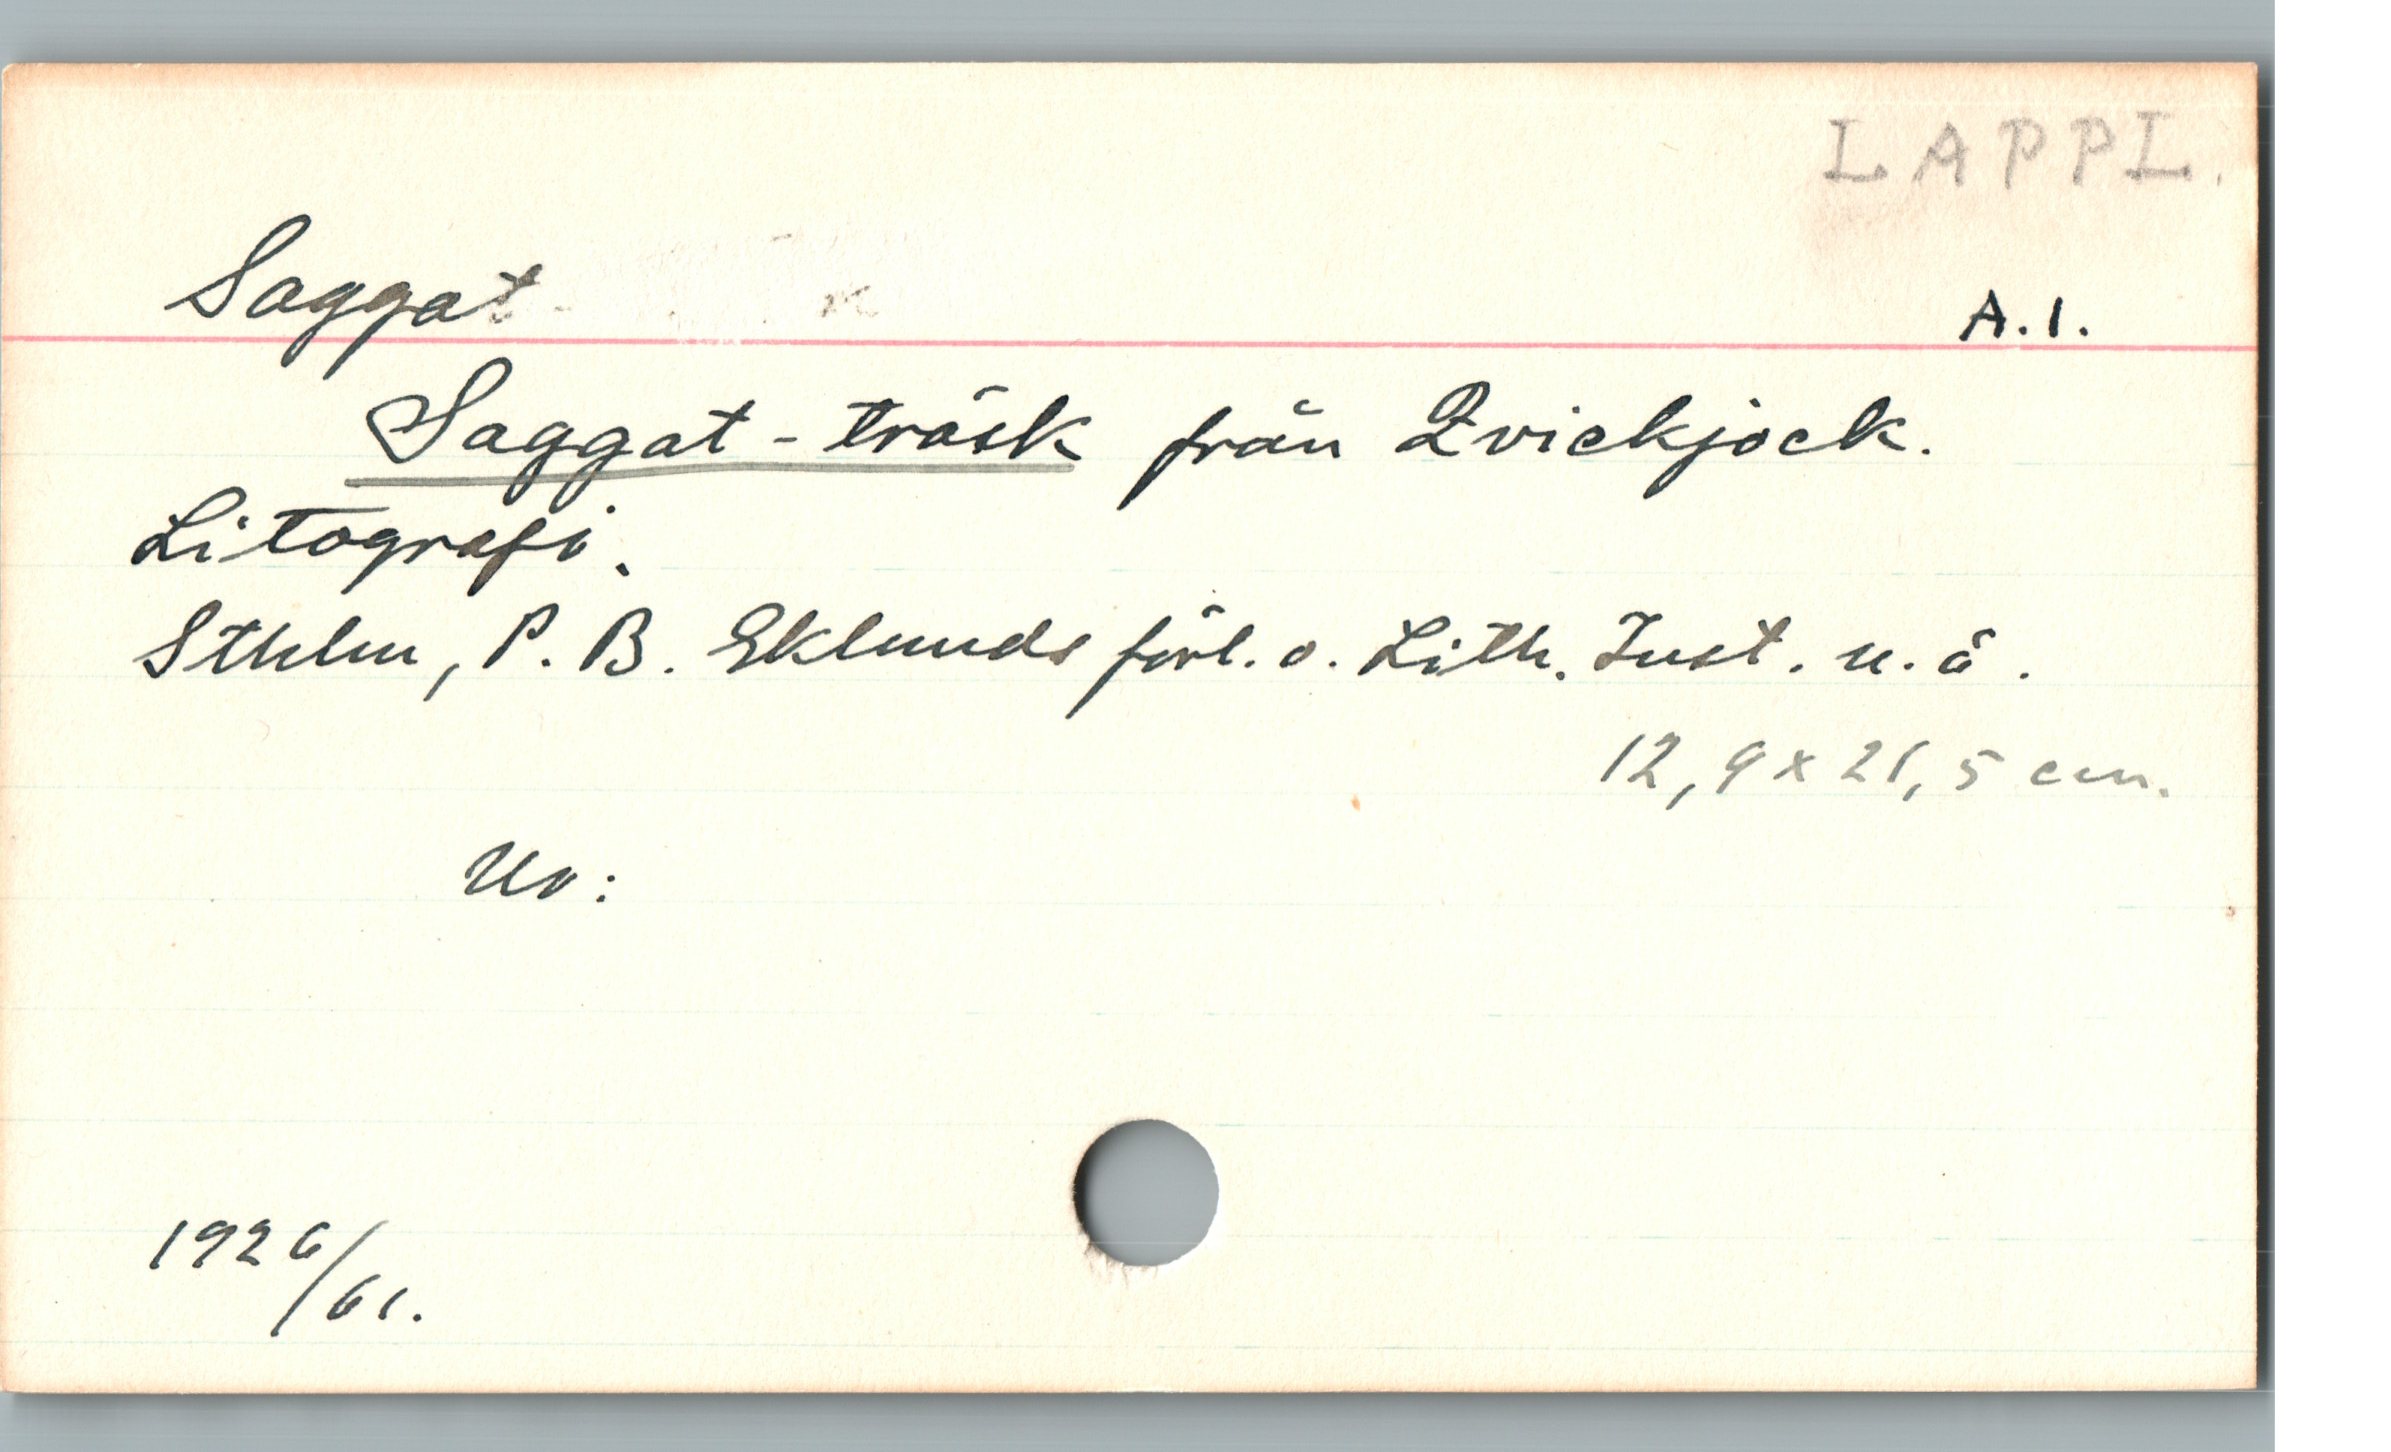 LAPPL.
Saggat
A.1.
Saggat-träsk från Qvickjock.
Litografi.
Sthlm, P. B. Eklunds förl. o. Lith. Inst. u. å.
12,9 x 21,5 cm.
Ur:
1926/61.